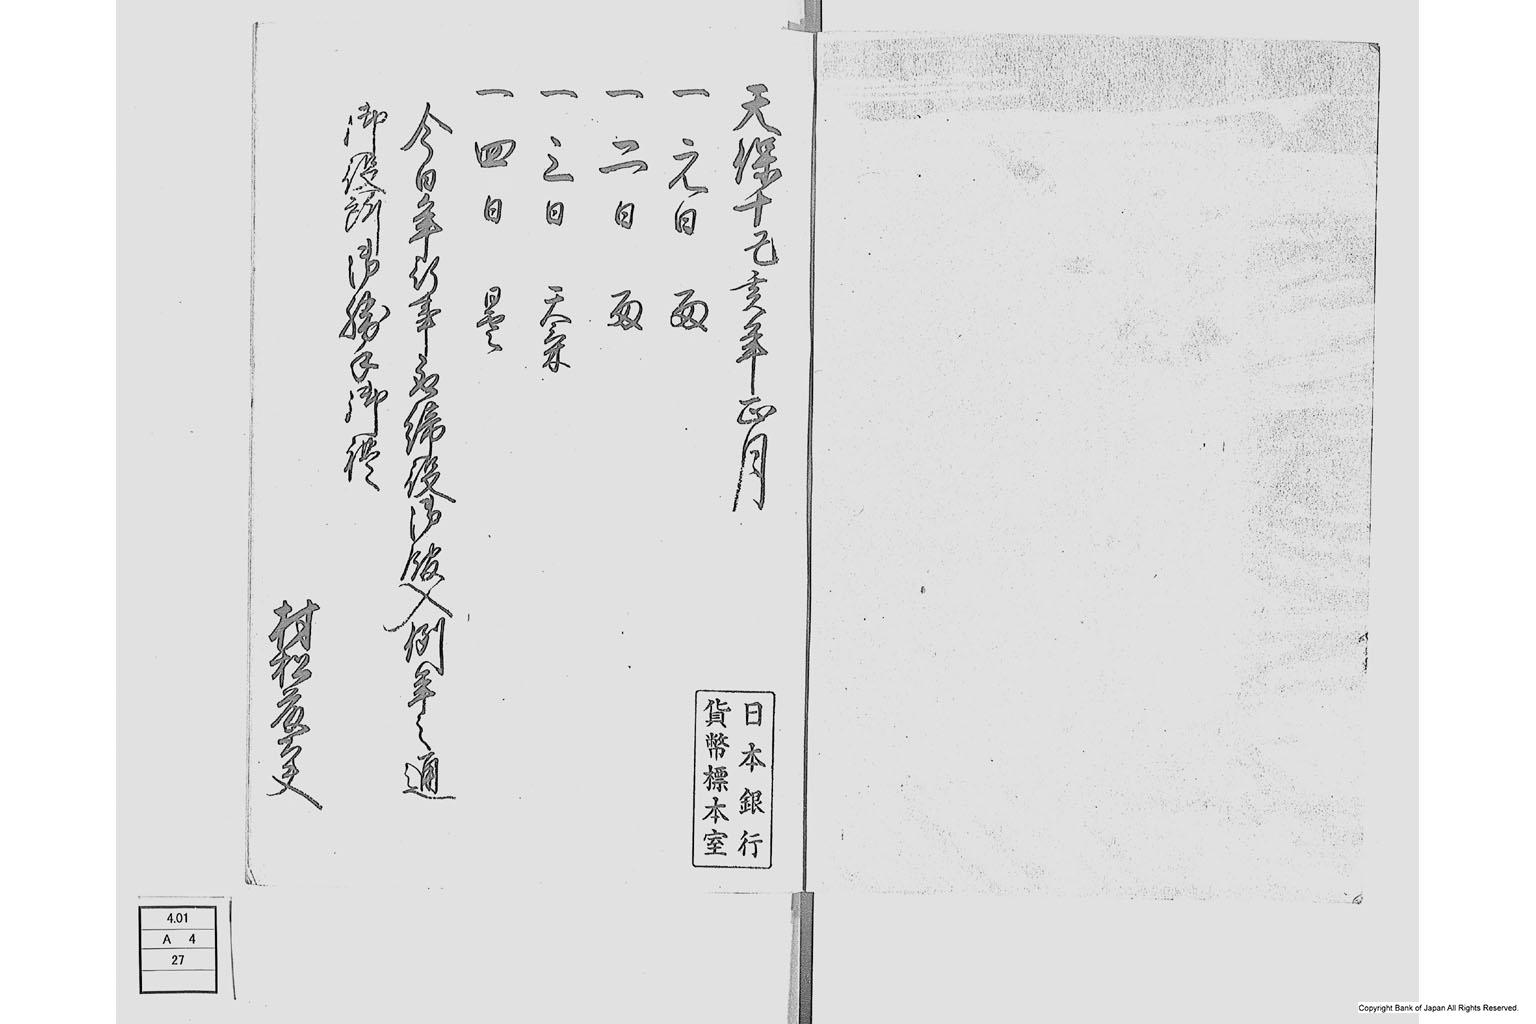 天保十己亥年正月
一 元日 雨
一 二日 雨
一 三日 天気
一 四日 曇
今日年行事取締役御飯入例年之通
御役所御勝手御礼
村松
日本銀行
貨幣標本室
4.01
A 4
27
Copyright Bank of Japan All Rights Reserved.